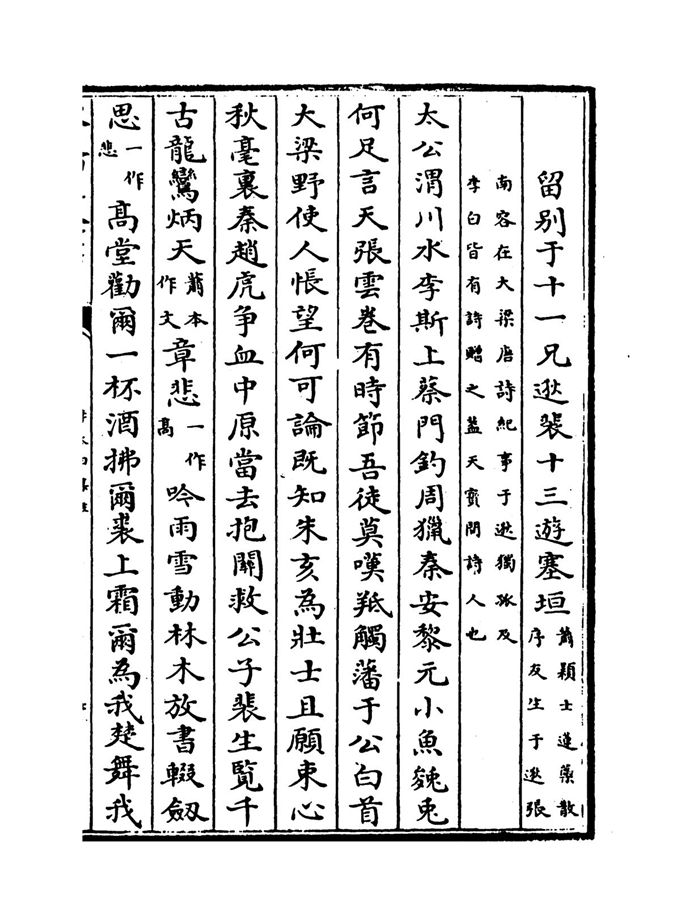 留别于十一兄逖裴十三遊塞垣蕭穎士蓬藥散序友生于逖張
南容在大梁唐詩紀事于逖獨孤及李白皆有詩贈之蓋天寶間詩人也
太公渭川水李斯上蔡門釣周獵秦安黎元小魚㕙兔
何足言天張雲卷有時節吾徒莫嘆羝觸藩于公白首
大梁野使人悵望何可論既知朱亥為壯士且願束心
秋毫裏秦趙虎争血中原當去抱關救公子裴生覽千
古龍鸞炳天蕭本作文章悲一作高吟雨雪動林木放書輟劔
思一作悲髙堂勸爾一杯酒拂爾裘上霜爾為我楚舞我